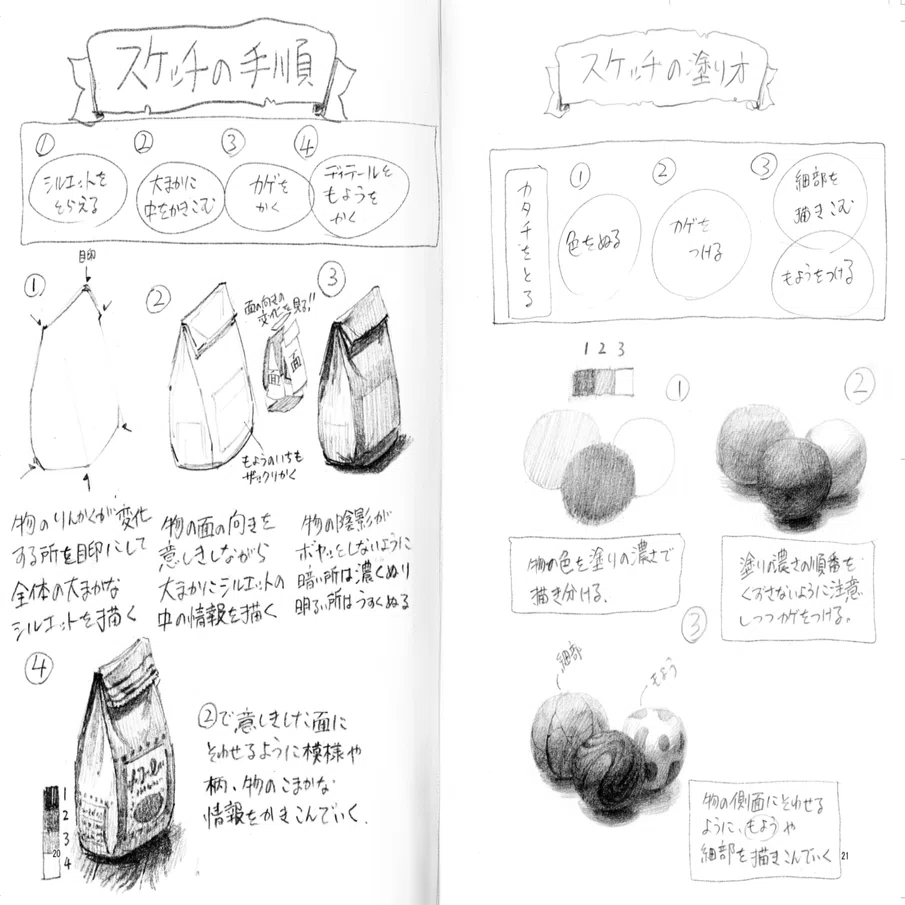 スケッチの手順
①
シルエットを
そらえる
②
大まかに
中をかきこむ
③
カゲを
かく
④
ディテールと
もようを
かく
①
目印
②
面の向きの
変化を見る!!
面
もようのいちも
ザックリかく
③
物のりんかくが変化
する所を目印にして
全体の大まかな
シルエットを描く
物の面の向きを
意しきしながら
大まかにシルエットの
中の情報を描く
物の陰影が
ボヤッとしないように
暗い所は濃くぬり
明るい所はうすくぬる
④
1
2
3
4
②で意しきした面に
そわせるように模様や
柄、物のこまかな
情報をかきこんでいく.
20
スケッチの塗り方
カタチをとる
①
色をぬる
②
カゲを
つける
③
細部を
描きこむ
もようをつける
1 2 3
①
物の色を塗りの濃さで
描き分ける.
②
塗りの濃さの順番を
くずさないように注意
しつつカゲをつける。
③
細部
もよう
物の側面にそわせる
ように、もようや
細部を描きこんでいく
21